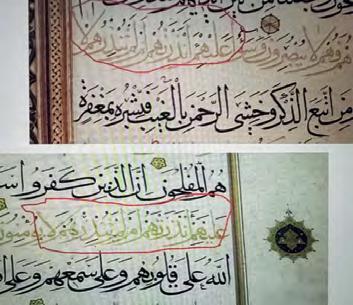 فهم لا يبصرون وسواء عليهم أنذرتهم أم لم تنذرهم لا
من اتبع الذكر وخشي الرحمن بالغيب فبشره بمغفرة
هم المفلحون إن الذين كفروا سوا
عليهم أنذرتهم أم لم تنذرهم لا يؤمنون
الله على قلوبهم وعلى سمعهم وعلى